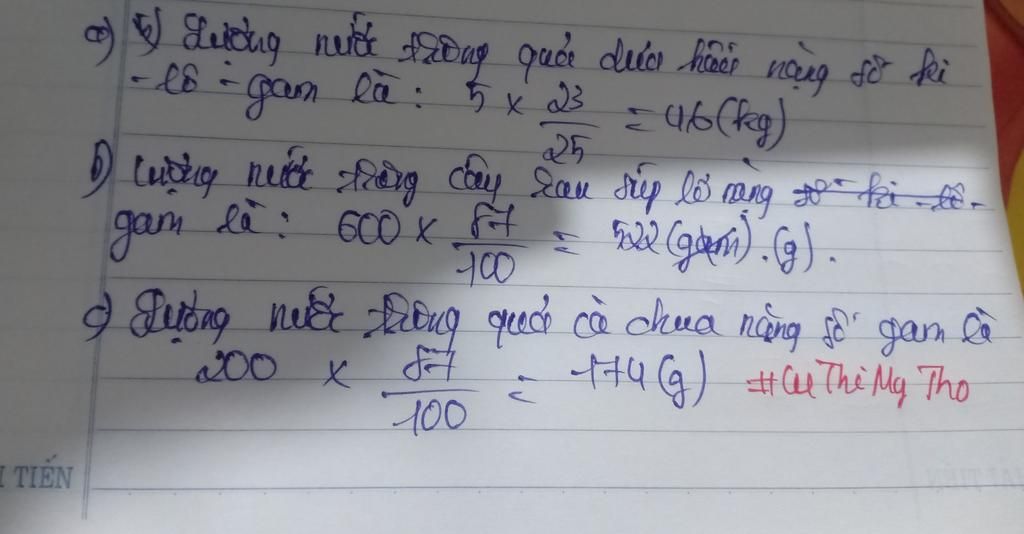 a) Lượng nước trong quả dưa hấu nặng số ki
- lô - gam là : 5 × 23/25 = 4,6 (kg)
b) Lượng nước trong cây rau súp lơ nặng số ki - lô -
gam là : 600 × 87/100 = 522 (gam) . (g) .
c) Lượng nước trong quả cà chua nặng số gam là
200 × 87/100 = 174 (g) #Cu Thi My Tho
I TIẾN